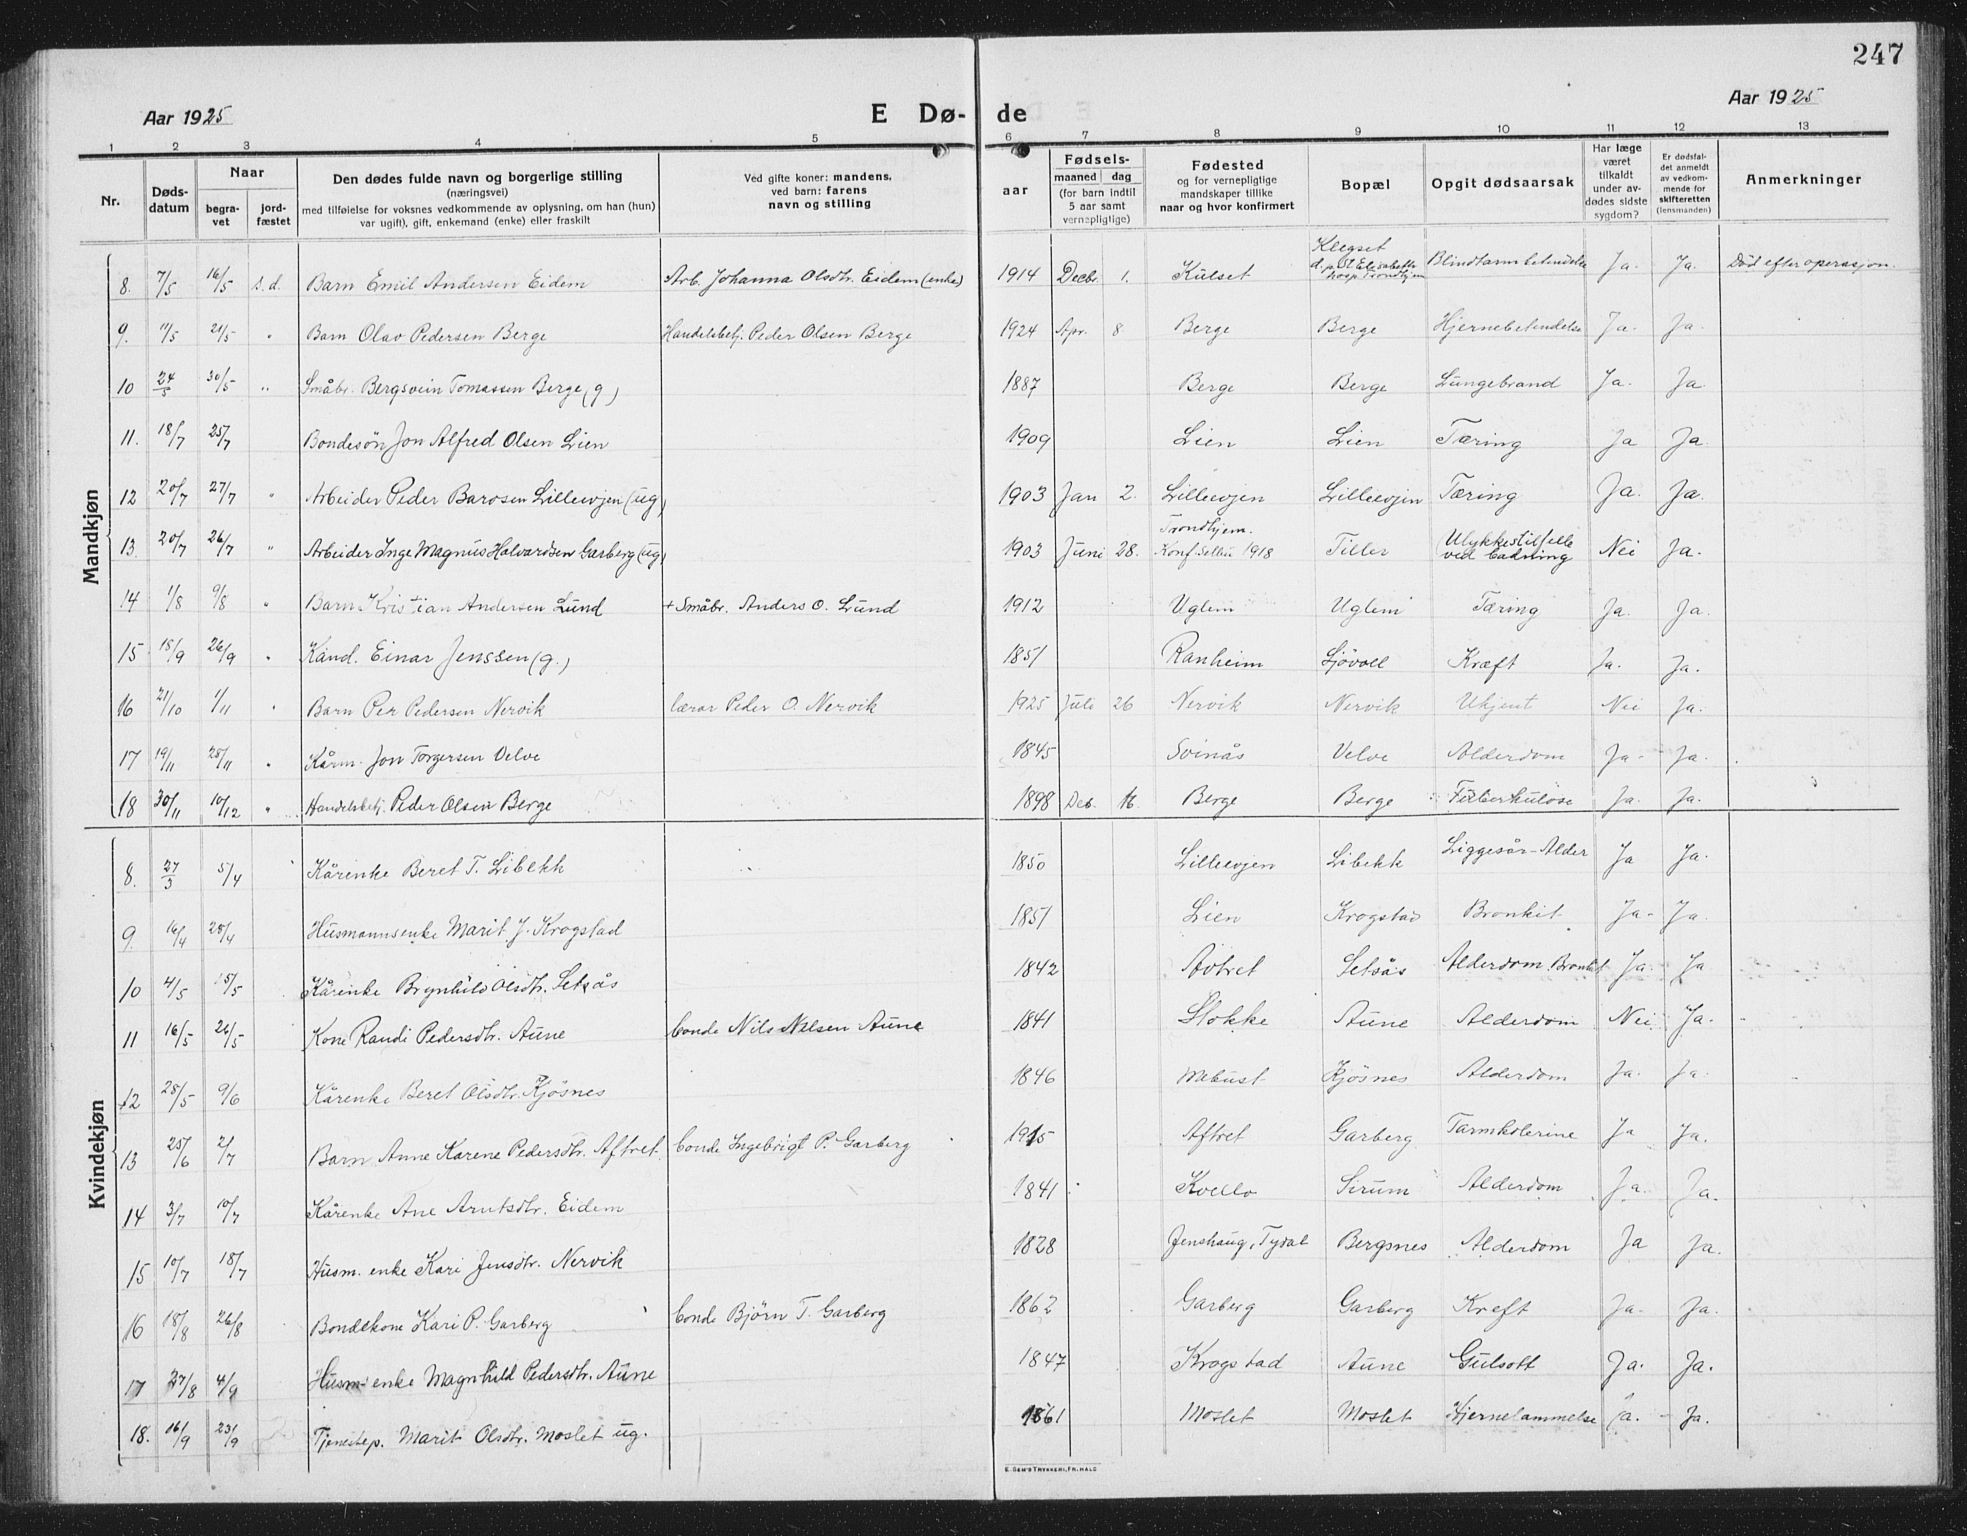 247
Aar 1925 E Dø- de Aar 1925
1 2 3 4 5 6 7 8 9 10 11 12 13
Nr. Døds-datum Naar begra-vet jord-fæstet Den dødes fulde navn og borgerlige stilling (næringsvei) med tilføielse for voksnes vedkommende av oplysning, om han (hun) var ugift), gift, enkemand (enke) eller fraskilt Ved gifte koner: mandens, ved barn: farens navn og stilling aar Fødsels- maaned dag (for barn indtil 5 aar samt vernepligtige) Fødested og for vernepligtige mandskaper tillike naar og hvor konfirmert Bopæl Opgit dødsaarsak Har læge været tilkaldt under av-dødes sidste sygdom? Er dødsfal-det anmeldt av vedkom-mende for skifteretten (lensmanden) Anmerkninger
Mandkjøn
8. 7/5 16/5 s.d. Barn Emil Andersen Eidem Arb. Johanna Olsdtr. Eidem (enke) 1914 Decbr. 1. Kulset Klegset d. p. St Elisabeth hosp. Trondhjem Blindtarmbetendelse Ja. Ja. Död efter operasjon.
9. 11/5 21/5 " Barn Olav Pedersen Berge Handelsbetj. Peder Olsen Berge 1924 Apr. 8 Berge Berge Hjernebetendelse Ja. Ja.
10 24/5 30/5 " Småbr. Bergsvein Tomassen Berge (g) 1887 Berge Berge Lungebrand Ja. Ja.
11. 18/7 25/7 Bondesön Jon Alfred Olsen Lien 1909 Lien Lien Tæring Ja Ja.
12 20/7 27/7 " Arbeider Peder Barosen Lillevjen (ug) 1903 Jan 2. Lillevjen Lillevjen Tæring Ja. Ja.
13. 20/7 26/7 " Arbeider Inge Magnus Halvardsen Garberg (ug) 1903 Juni 28. Trondhjem. Konf. Selbu 1918 Tiller Ulykkestilfelle ved badning Nei Ja.
14 1/8 9/8 " Barn Kristian Andersen Lund + Småbr. Anders O. Lund 1912 Uglem Uglem Tæring Ja. Ja.
15 15/9 26/9 " Kand. Einar Jenssen (g.) 1851 Ranheim Sjövoll Kræft Ja. Ja.
16 21/10 1/11 " Barn Per Pedersen Nervik lærar Peder O. Nervik 1925 Juli 26 Nervik Nervik Ukjent Nei Ja.
17 19/11 28/11 " Kårm. Jon Torgersen Velve 1845 Svinås Velve Alderdom Ja - Ja.
18 30/11 10/12 " Handelsbetj. Peder Olsen Berge 1898 Des. 16. Berge Berge Tuberkulose Ja. Ja.
Kvindekjøn
8. 27/3 5/4 Kårenke Beret T. Libekk 1850 Lillevjen Libekk Liggesår-Alder Ja Ja.
9. 16/4 28/4 Husmannsenke Marit J. Krogstad 1851 Lien Krogstad Bronkit Ja - Ja.
10 4/5 15/5 Kårenke Brynhild Olsdtr. Setsås 1842 Setsås Alderdom. Bronkit Ja. Ja
11 16/5 26/5 Kone Randi Pedersdtr. Aune bonde Nils Nilsen Aune 1841 Slokke Aune Alderdom Nei Ja.
12 28/5 9/6 Kårenke Beret Olsdtr. Kjösnes 1846 Mebust Kjösnes Alderdom Ja. Ja.
13 25/6 2/7 Barn Anne Karene Pedersdtr. Aftret. bonde Ingebrigt P. Garberg 1915 Aftret Garberg Tarmkolerine Ja Ja.
14 3/7 10/7 Kårenke Ane Arntsdtr. Eidem 1841 Kvello Sirum Alderdom Ja. Ja.
15 10/7 18/7 Husm. enke Kari Jensdtr. Nervik 1828 Jenshaug, Tydal Bergsnes Alderdom Ja Ja.
16 18/8 26/8 Bondekone Kari P. Garberg bonde Björn T. Garberg 1862 Garberg Garberg Kreft Ja. Ja.
17 27/8 4/9 Husm-enke Magnhild Pedersdtr. Aune 1847 Krogstad Aune Gulsott Ja. Ja.
18. 16/9 23/9 Tjenestep. Marit Olsdtr. Moslet ug. 1861 Moslet Moslet Hjernelammelse Ja. - Ja.
E. SEM'S TRYKKERI, FR. HALD